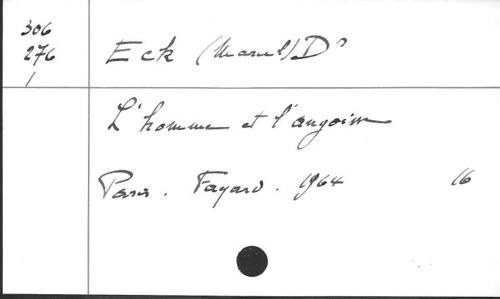 306
276
1
Eck (Marcel) Dr
L'homme et l'angoisse
Paris. Fayard. 1964 16